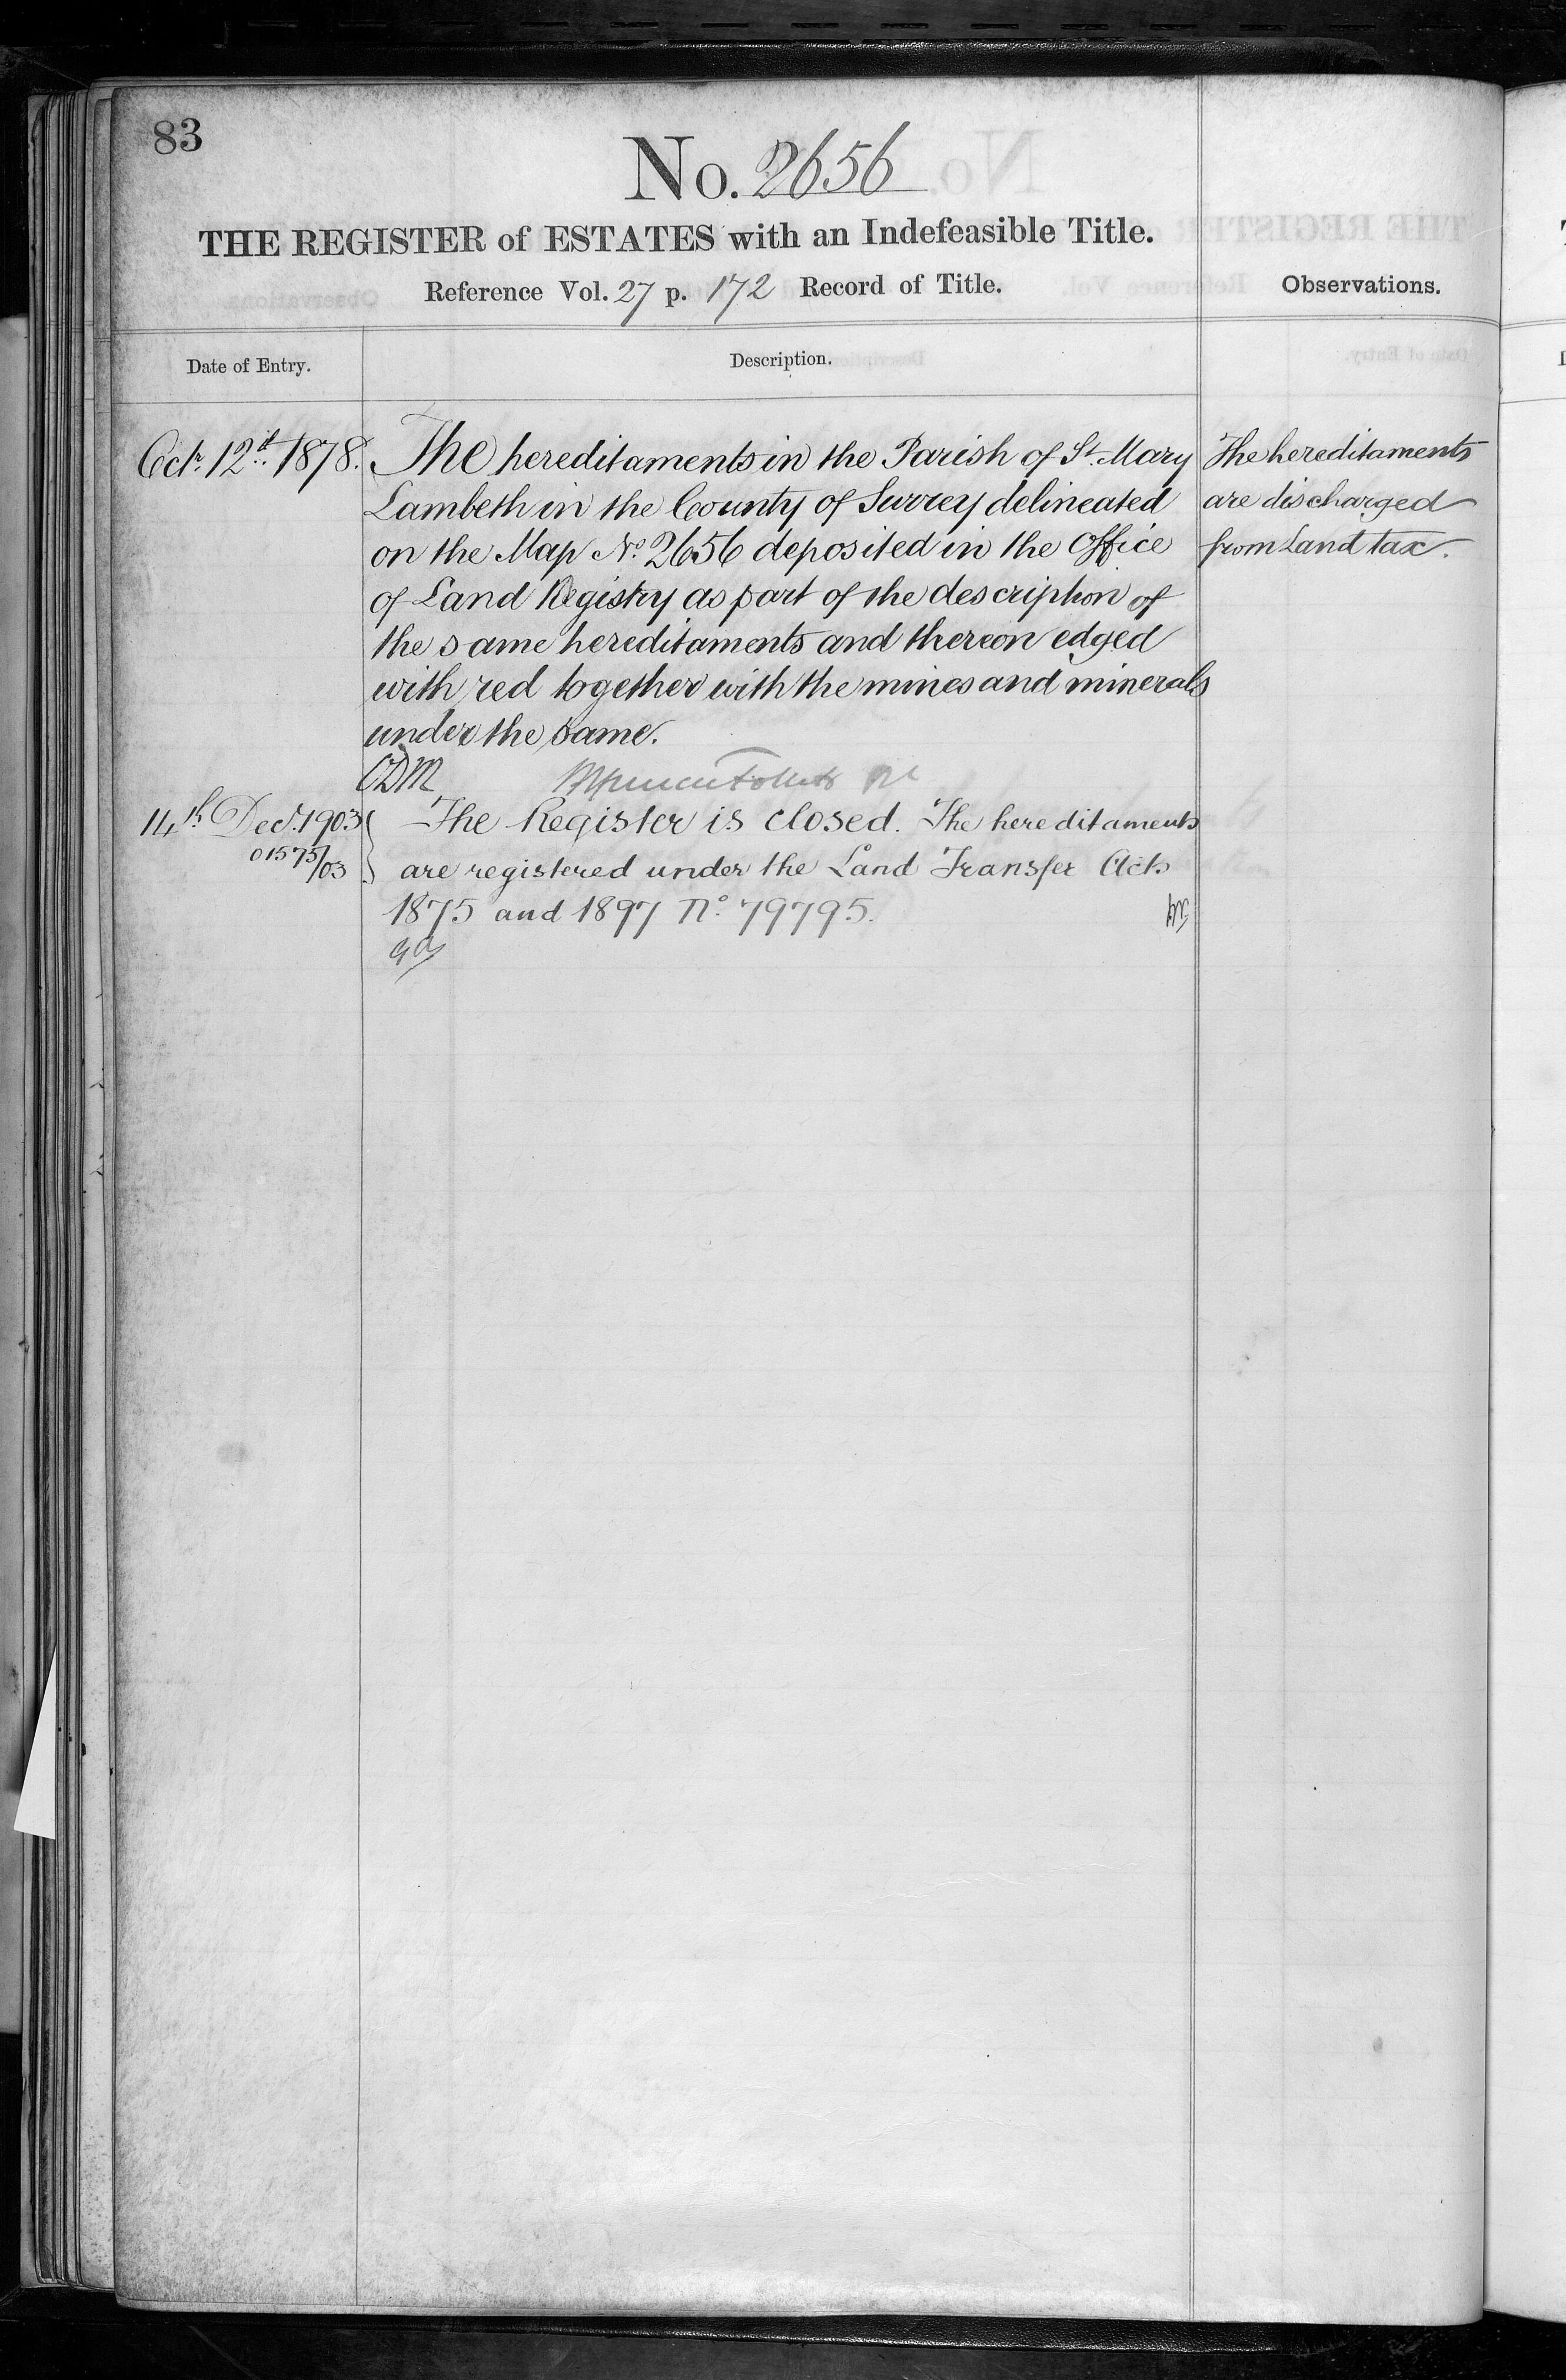 83
No. 2656
THE REGISTER of ESTATES with an Indefeasible Title.
Reference Vol. 27 p. 172 Record of Title.
Observations.
Date of Entry.
Description.
Octr. 12th 1878.
The hereditaments in the Parish of St. Mary
Lambeth in the County of Surrey delineated
on the Map No. 2656 deposited in the Office
of Land Registry as part of the description of
the same hereditaments and thereon edged
with red together with the mines and minerals
under the same.
The hereditaments
are discharged
from Land tax.
CDM
14th Decr. 1903
01575/03
The Register is closed. The hereditaments
are registered under the Land Transfer Acts
1875 and 1897 No. 79795.